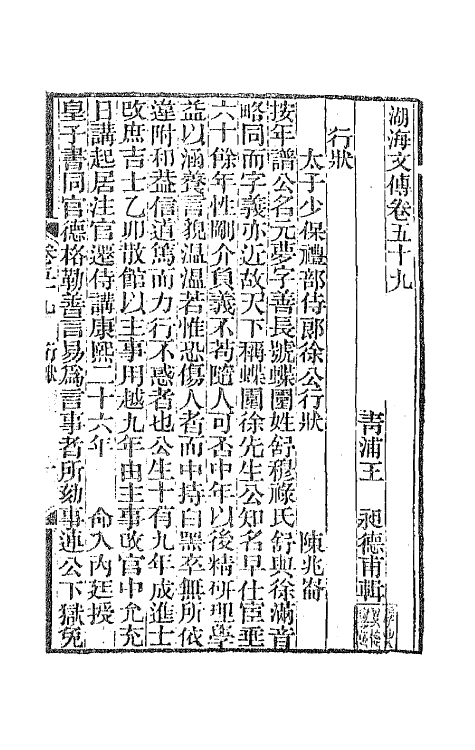 湖海文傳卷五十九
青浦王　昶德甫輯
行狀
太子少保禮部侍郎徐公行狀　陳兆崙
按年譜公名元夢字善長號蝶園姓舒穆祿氏舒與徐滿音
略同而字義亦近故天下稱蝶園徐先生公知名早仕宦垂
六十餘年性剛介負義不苟隨人可否中年以後精研理學
益以涵養言貌溫溫若惟恐傷人者而中持白黑卒無所依
違附和葢信道篤而力行不惑者也公生十有九年成進士
改庶吉士乙卯散館以主事用越九年由主事改官中允充
日講起居注官遷侍講康熙二十六年　命入內廷授
皇子書同官德格勒善言易爲言事者所劾事連公下獄免
卷五十九　行狀